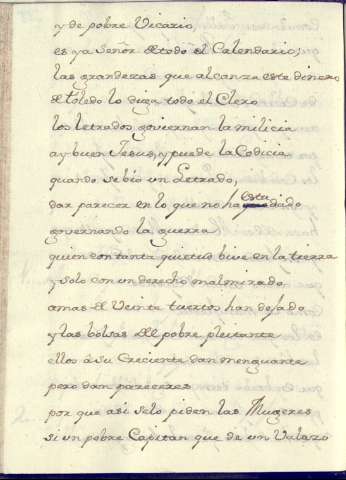 y de pobre Vicario,
es ya Señor de todo el Calendario;
las grandezas que alcanza este dinero
de toledo lo diga todo el Clero
los letrados goviernan la milicia
ay buen Jesus, y puede la Codicia
quando se bió un Letrado,
dar parecer en lo que no ha estudiado
governando la guerra
quien con tanta quietud bive en la tierra
y solo con un derecho mal mirado
a mas de Veinte tuertos han dejado
y las bolsas del pobre pleitante
ellos á su Creciente dan menguante
pero dan pareceres
por que asi selo piden las Mugeres
si un pobre Capitan que de un Valazo